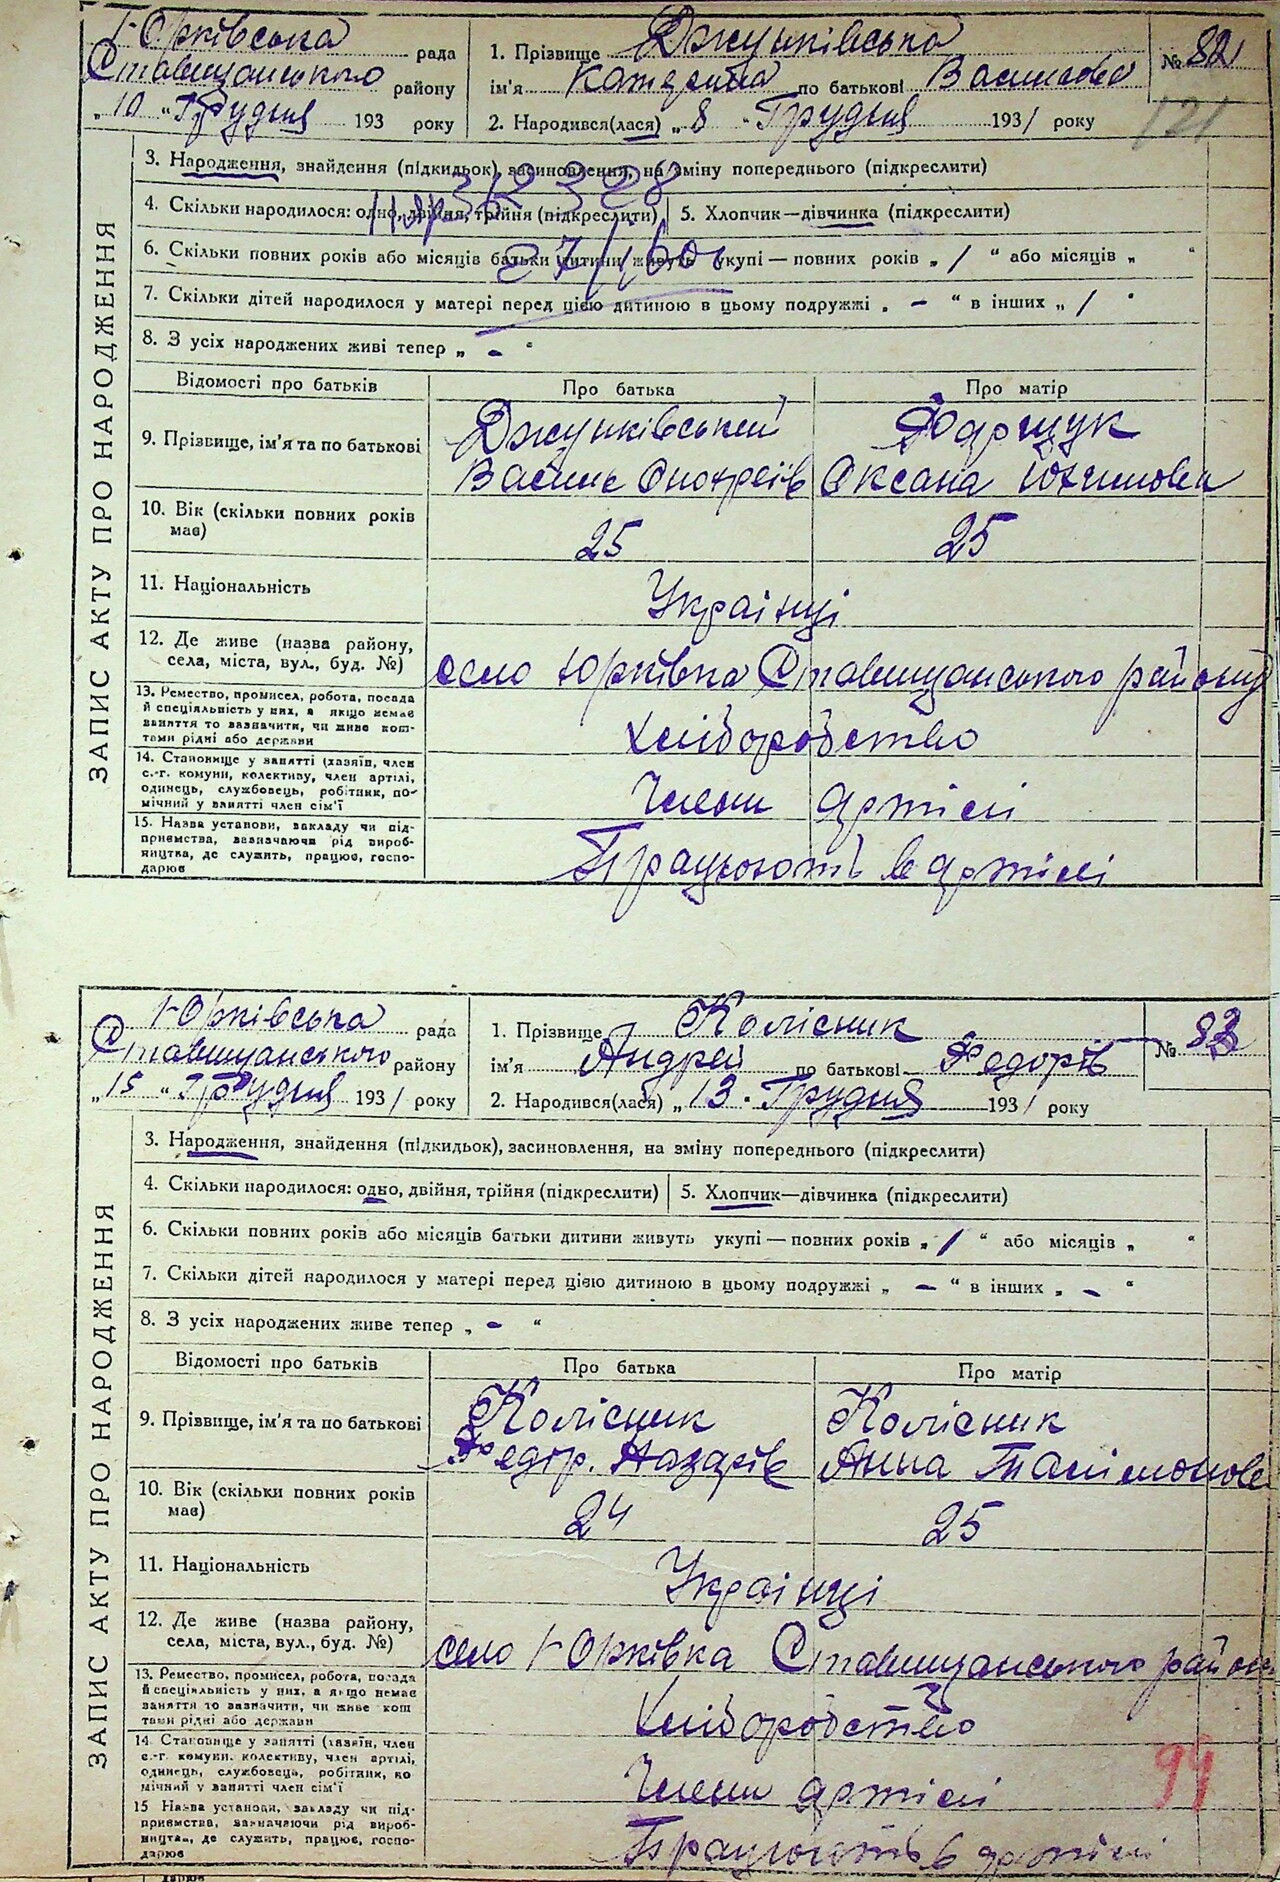 Юрківська рада
Ставищанського району
„10 “ Грудня 193 року
1. Прізвище Джунківська
ім'я Катерина по батькові Василева
2. Народився(лася) „ 8 “ Грудня 1931 року
№ 82
121
ЗАПИС АКТУ ПРО НАРОДЖЕННЯ
3. Народження, знайдення (підкидьок), засиновлення, на зміну попереднього (підкреслити)
4. Скільки народилося: одно, двійня, трійня (підкреслити) 5. Хлопчик—дівчинка (підкреслити)
6. Скільки повних років або місяців батьки дитини живуть укупі — повних років „ 1 “ або місяців „ “
7. Скільки дітей народилося у матері перед цією дитиною в цьому подружжі „ – “ в інших „ 1 “
8. З усіх народжених живі тепер „ – “
Відомості про батьків Про батька Про матір
9. Прізвище, ім'я та по батькові Джунківський Фарщук
Василь Онопріїв Оксана Юхимовна
10. Вік (скільки повних років має) 25 25
11. Національність Українці
12. Де живе (назва району, села, міста, вул., буд. №) село Юрківка Ставищанського району
13. Ремество, промисел, робота, посада
й спеціяльність у них, а якщо немає
заняття то зазначити, чи живе кош-
тами рідні або держави
Хліборобство
14. Становище у занятті (хазяїн, член
с.-г. комуни, колективу, член артілі,
одинець, службовець, робітник, по-
мічний у занятті член сім'ї
Члени артілі
15. Назва установи, закладу чи під-
приємства, зазначаючи рід вироб-
ництва, де служить, працює, госпо-
дарює
Працюють в артілі
Юрківська рада
Ставищанського району
„ 15 “ Грудня 1931 року
1. Прізвище Колісник
ім'я Андрей по батькові Федорів
2. Народився(лася) „ 13 “ Грудня 1931 року
№ 83
ЗАПИС АКТУ ПРО НАРОДЖЕННЯ
3. Народження, знайдення (підкидьок), засиновлення, на зміну попереднього (підкреслити)
4. Скільки народилося: одно, двійня, трійня (підкреслити) 5. Хлопчик—дівчинка (підкреслити)
6. Скільки повних років або місяців батьки дитини живуть укупі — повних років „ 1 “ або місяців „ “
7. Скільки дітей народилося у матері перед цією дитиною в цьому подружжі „ – “ в інших „ – “
8. З усіх народжених живе тепер „ – “
Відомості про батьків Про батька Про матір
9. Прізвище, ім'я та по батькові Колісник Колісник
Федір Назарів Анна
10. Вік (скільки повних років має) 24 25
11. Національність Українці
12. Де живе (назва району, села, міста, вул., буд. №) село Юрківка Ставищанського району
13. Ремество, промисел, робота, посада
й спеціяльність у них, а якщо немає
заняття то зазначити, чи живе кош
тами рідні або держави
Хліборобство
14. Становище у занятті (хазяїн, член
с.-г. комуни. колективу, член артілі,
одинець, службовець, робітник, по
мічний у занятті член сім'ї
Члени артілі
99
15 Назва установи, закладу чи під-
приємства, зазначаючи рід вироб-
ництва, де служить, працює, госпо-
дарює
Працюють в артілі